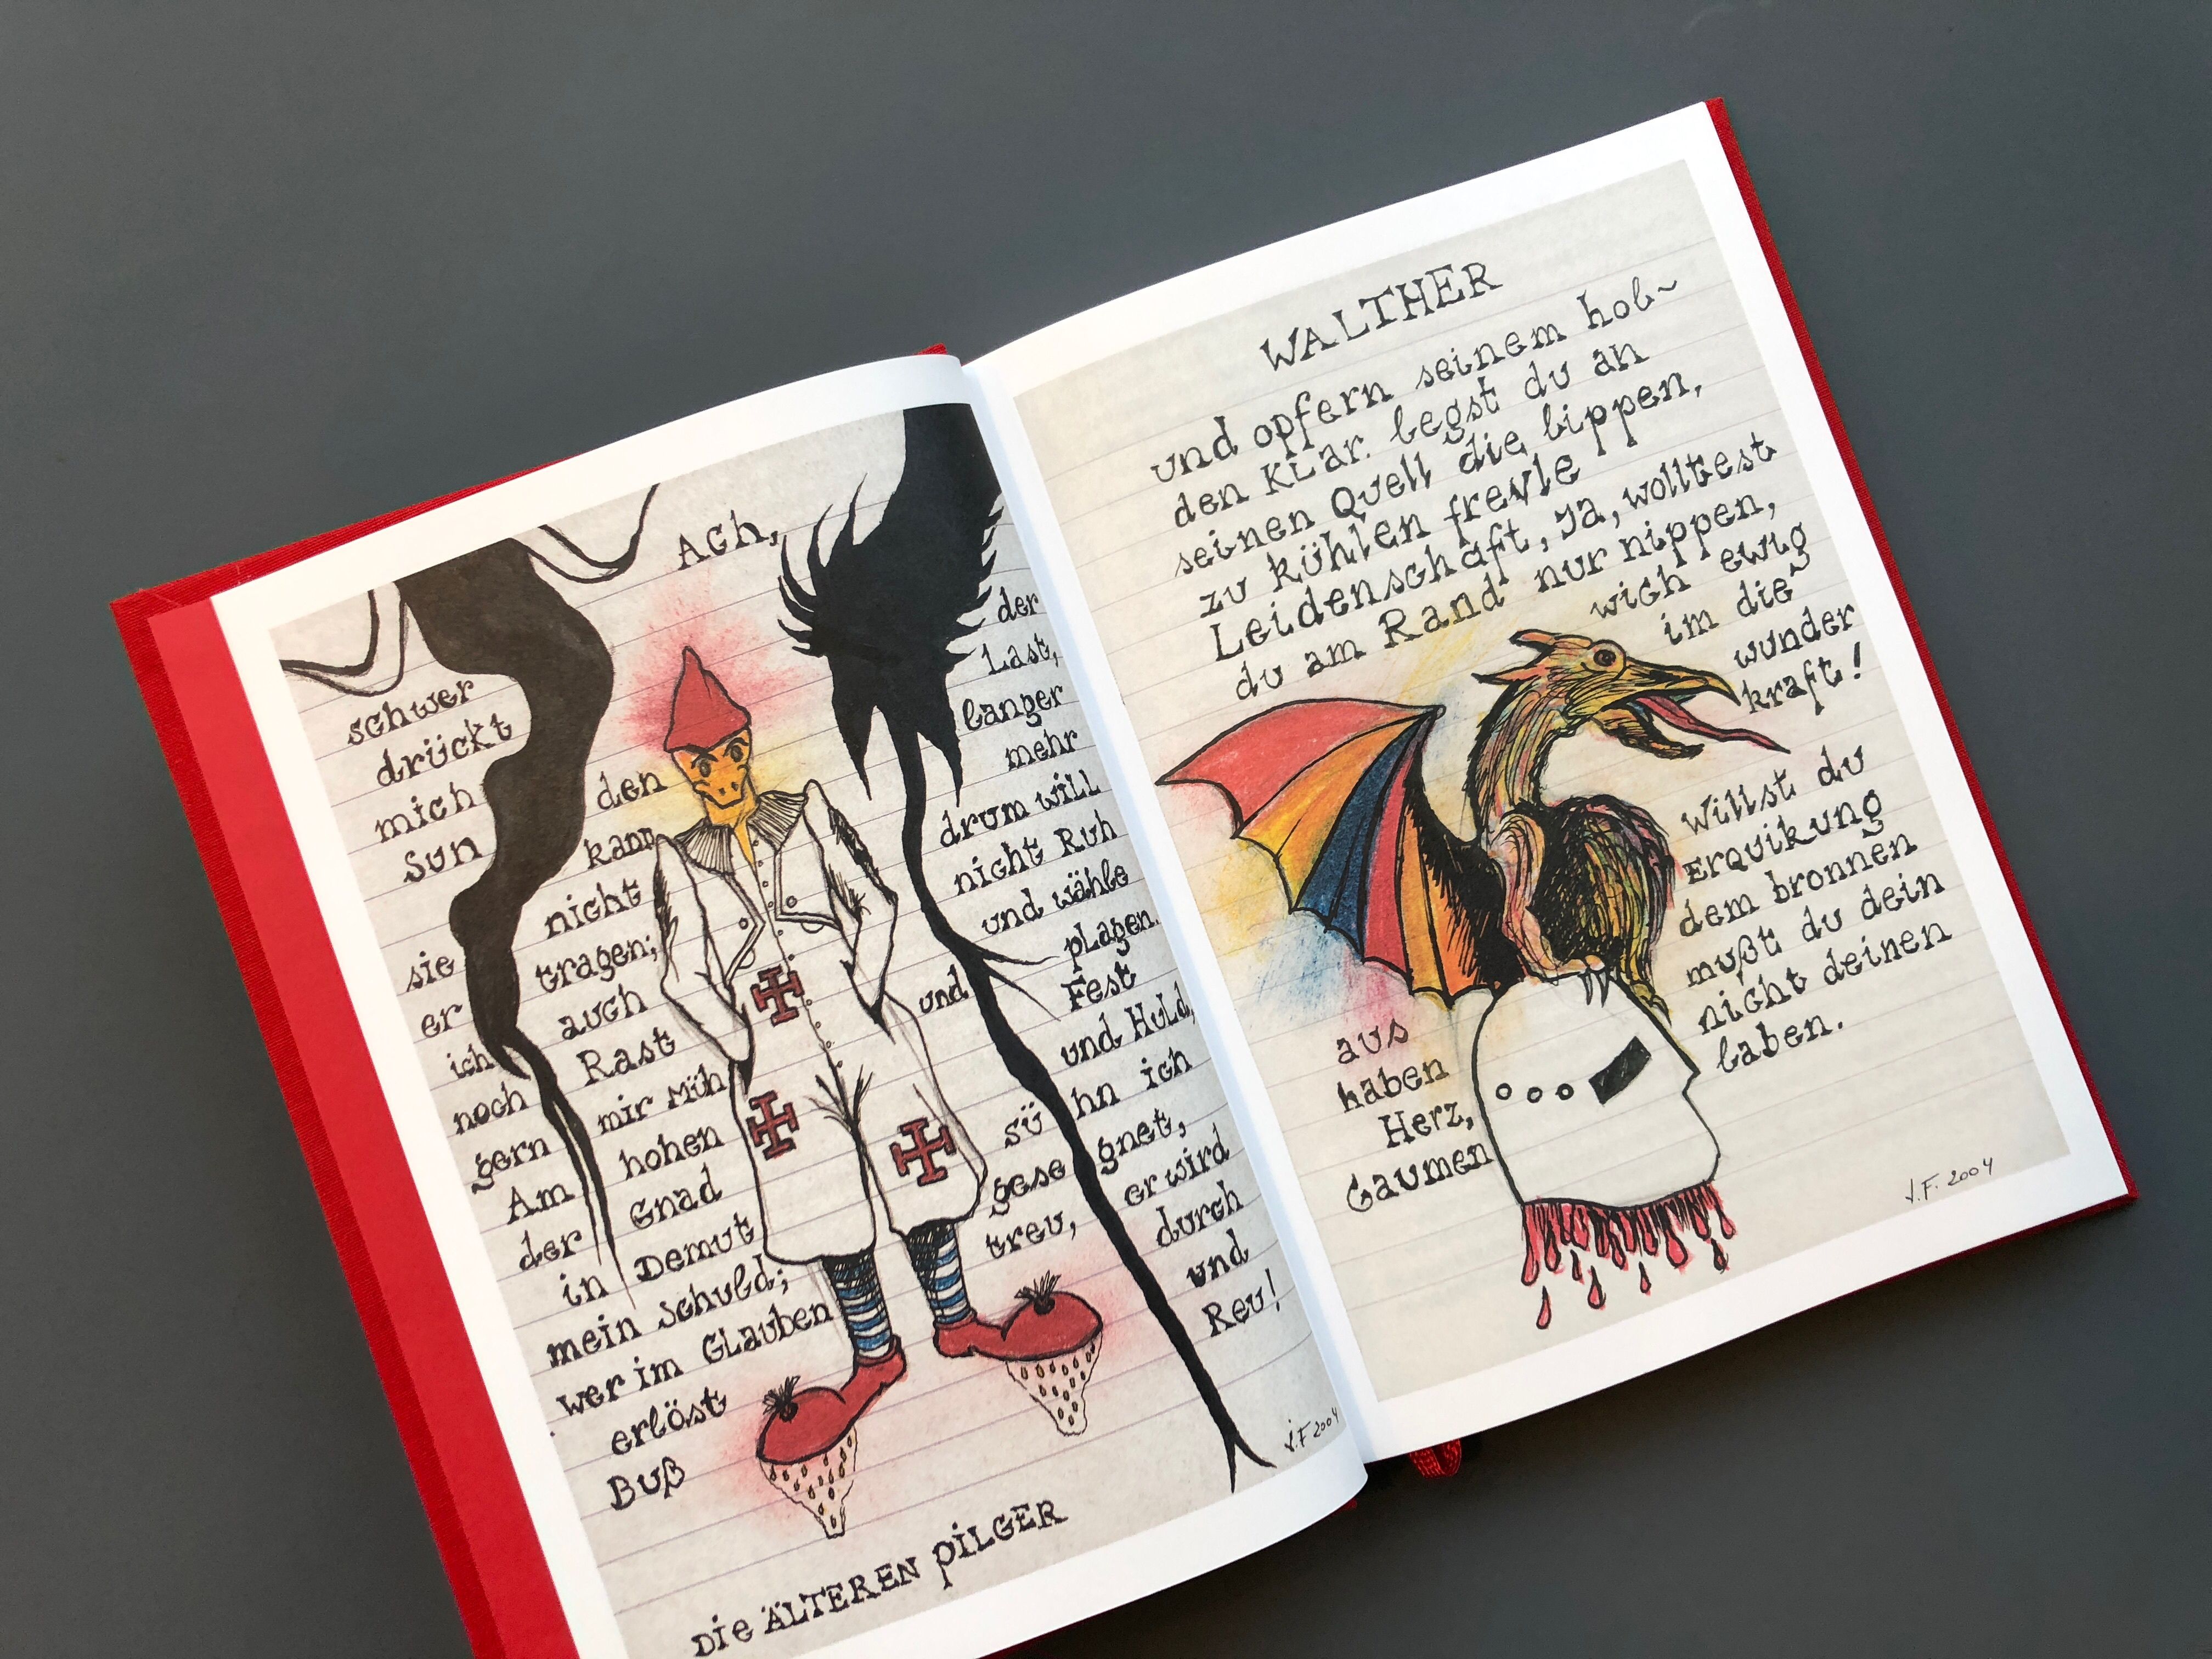 Ach,
schwer
drückt
mich der
Sun den Last,
kann langer
sie nicht mehr
er tragen; drum will
ich auch nicht Ruh
noch Rast und wähle
gern mir Müh und plagen.
Am hohen Fest
der Gnad und Huld,
in Demut sü hn ich
mein Schuld; gese gnet,
wer im Glauben treu, er wird
erlöst durch
Buß und
Reu!
J.F 2004
DiE ÄLTEREN piLGER
WALTHER
und opfern seinem hol~
den Klar. legst du an
seinen Quell die lippen,
zu kühlen frevle
Leidenschaft, ja, wolltest
du am Rand nur nippen,
wich ewig
im die
wunder
kraft!
Willst du
Erquikung
aus dem bronnen
haben mußt du dein
Herz, nicht deinen
Gaumen laben.
J.F. 2004